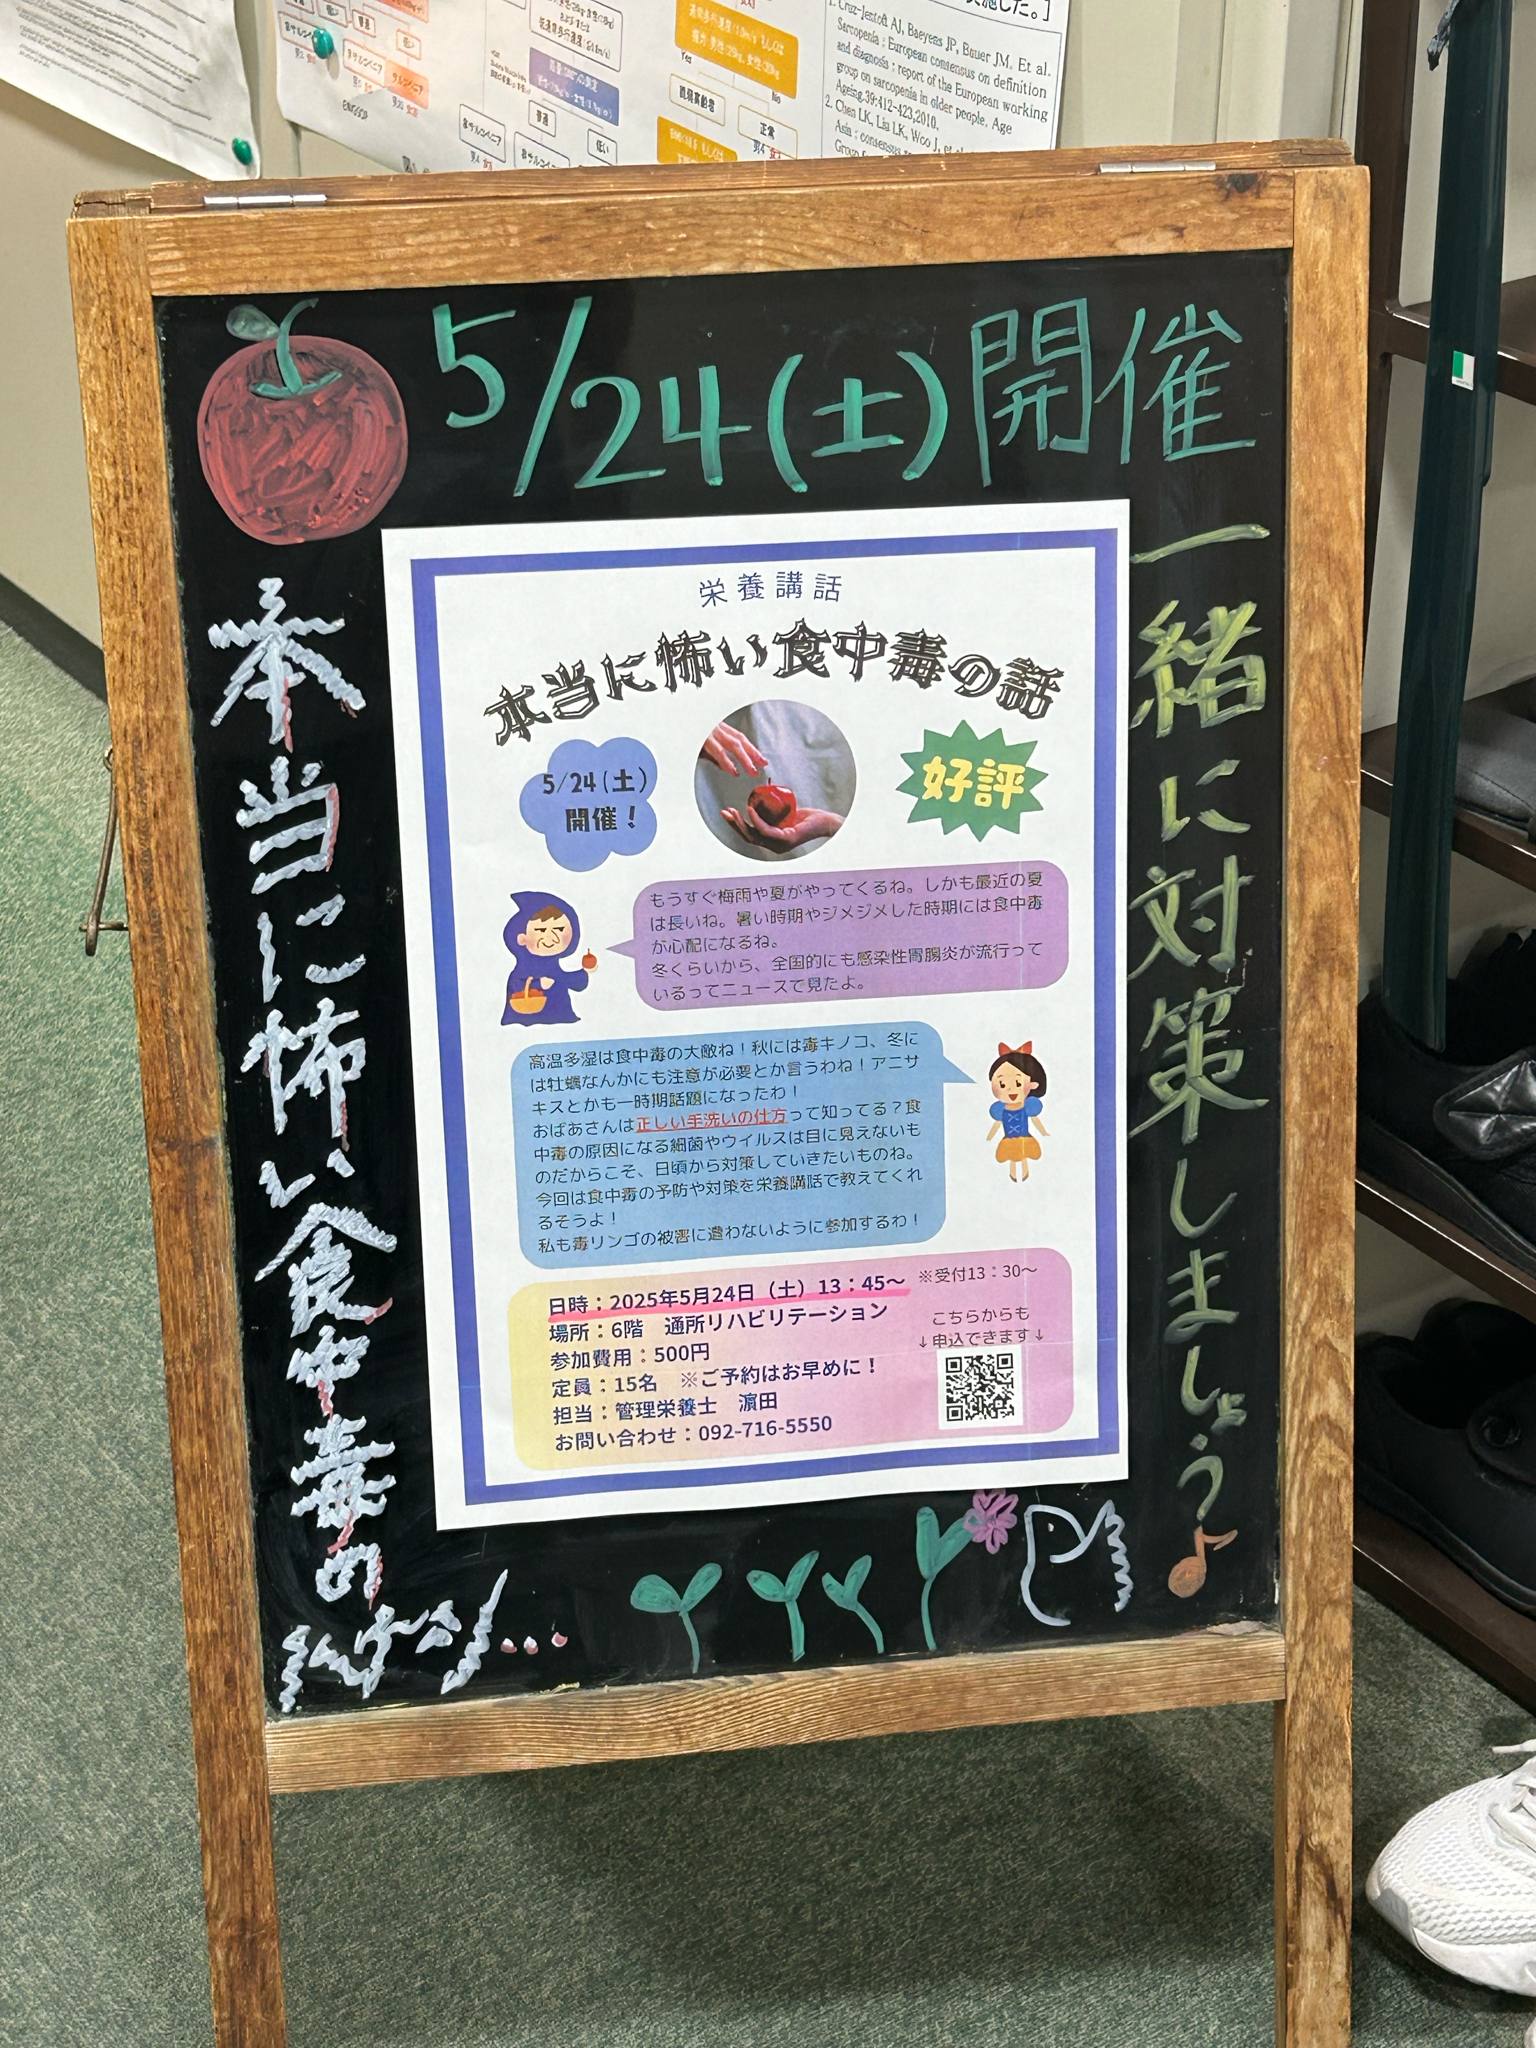 実施した。］
1. Cruz-Jentoft AJ, Baeyens JP, Bauer JM, Et al.
Sarcopenia : European consensus on definition
and diagnosis : report of the European working
group on sarcopenia in older people. Age
Ageing.39:412-423,2010.
2. Chen LK, Liu LK, Woo J,
Asia : consensus
Yes
No
正常
普通
低い
5/24(土)開催
本当に怖い食中毒の
一緒に対策しましょう♪
栄養講話
本当に怖い食中毒の話
5/24(土)
開催！
好評
もうすぐ梅雨や夏がやってくるね。しかも最近の夏
は長いね。暑い時期やジメジメした時期には食中毒
が心配になるね。
冬くらいから、全国的にも感染性胃腸炎が流行って
いるってニュースで見たよ。
高温多湿は食中毒の大敵ね！秋には毒キノコ、冬に
は牡蠣なんかにも注意が必要とか言うわね！アニサ
キスとかも一時期話題になったわ！
おばあさんは正しい手洗いの仕方って知ってる？食
中毒の原因になる細菌やウイルスは目に見えないも
のだからこそ、日頃から対策していきたいものね。
今回は食中毒の予防や対策を栄養講話で教えてくれ
るそうよ！
私も毒リンゴの被害に遭わないように参加するわ！
日時：2025年5月24日（土）13：45〜 ※受付13：30〜
場所：6階　通所リハビリテーション
参加費用：500円
定員：15名　※ご予約はお早めに！
担当：管理栄養士　濵田
お問い合わせ：092-716-5550
こちらからも
↓申込できます↓